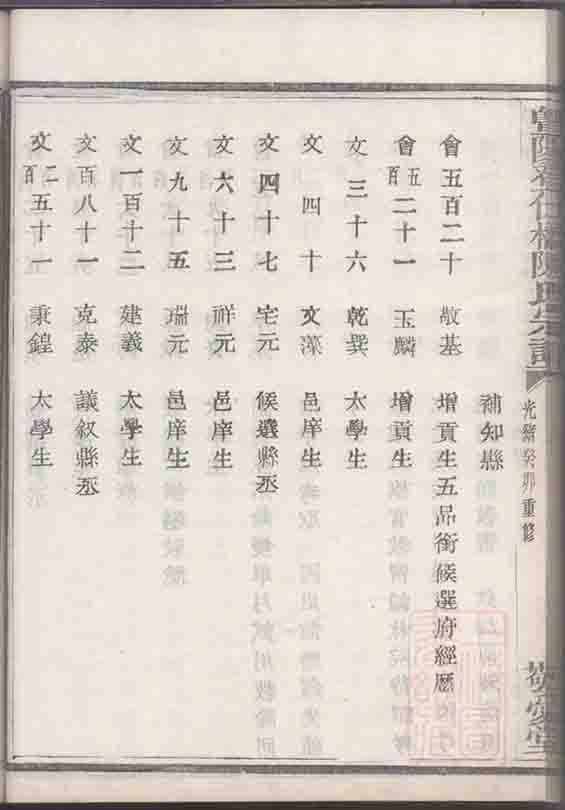 暨陽孝仁橋陳氏宗譜
光緒癸卯重修
敬愛堂
補知縣
會五百二十 敬基 增貢生五品銜候選府經歷
會五百二十一 玉麟 增貢生
文三十六 乾巽 太學生
文四十 文藻 邑庠生
文四十七 宅元 候選縣丞
文六十三 祥元 邑庠生
文九十五 瑞元 邑庠生
文一百十二 建義 太學生
文百八十一 克泰 議叙縣丞
文二百五十一 秉鍠 太學生